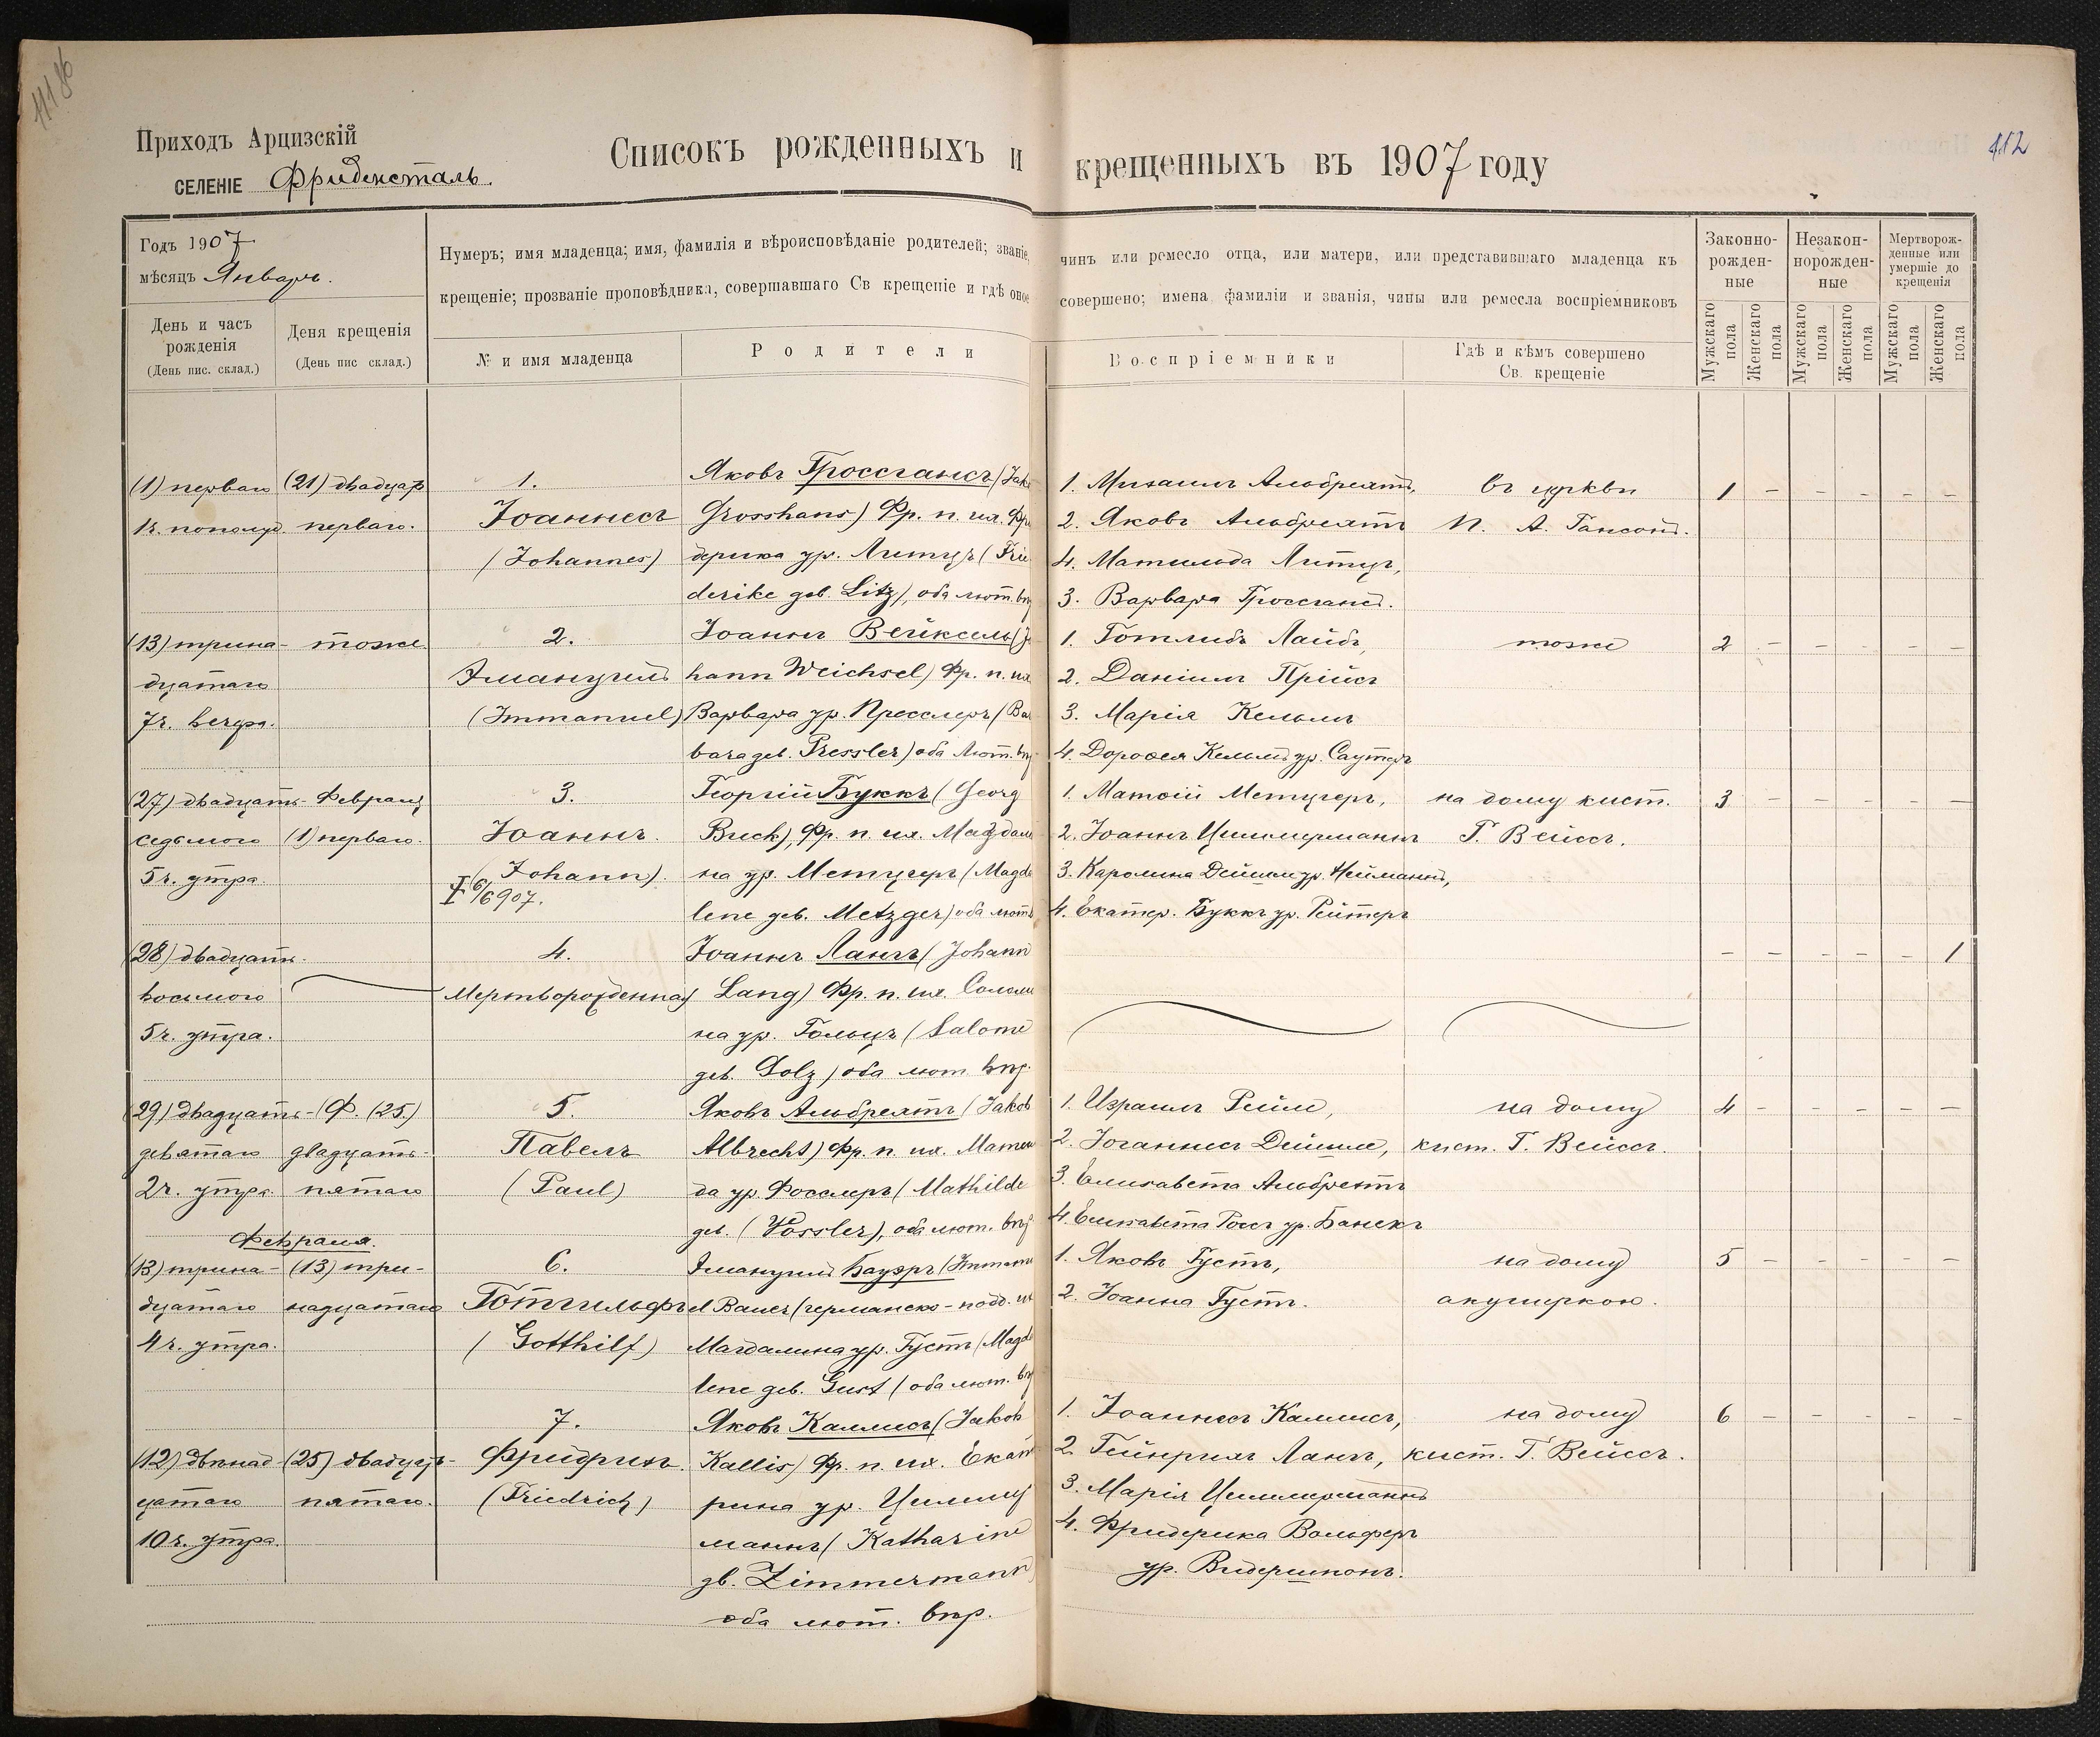 1186
112
Приходъ Арцизскій
СЕЛЕНІЕ Фриденсталь.
Списокъ рожденныхъ и крещенныхъ въ 1907 году
Годъ 1907
мѣсяцъ Январь.
Нумеръ; имя младенца; имя, фамилія и вѣроисповѣданіе родителей; званіе,
крещеніе; прозваніе проповѣдника, совершавшаго Св крещеніе и гдѣ оное
чинъ или ремесло отца, или матери, или представившаго младенца къ
совершено; имена фамиліи и званія, чины или ремесла воспріемниковъ
Законно-
рожден-
ные
Незакон-
норожден-
ные
Мертворож-
денные или
умершіе до
крещенія
День и часъ
рожденія
(День пис. склад.)
Деня крещенія
(День пис склад.)
№ и имя младенца
Родители
Воспріемники
Гдѣ и кѣмъ совершено
Св. крещеніе
Мужскаго пола
Женскаго пола
Мужскаго пола
Женскаго пола
Мужскаго пола
Женскаго пола
(1) перваго
1 ч. пополуд.
(21) двадцать
перваго.
1.
Іоаннесъ
(Johannes)
Яковъ Гроссгансъ (Jako
Grosshans) Фр. п. их. Фри
дерика ур. Литцъ (Frie
derike geb. Litz), оба лют. вѣр
1. Михаилъ Альбрехтъ,
2. Яковъ Альбрехтъ
4. Матильда Литцъ,
3. Варвара Гроссгансъ.
въ церкви
П. А. Гансонъ.
1 – – – – –
(13) трина-
дцатаго
7 ч. вечера.
тоже.
2.
Эмануилъ
(Immanuel)
Іоаннъ Вейксель (Jo
hann Weichsel) Фр. п. их
Варвара ур. Пресслеръ (Bar
bara geb. Pressler) оба Лют. вѣр
1. Готлибъ Лайбъ,
2. Даніилъ Прійсъ
3. Марія Кельмъ
4. Дороѳея Кельмъ ур. Саутеръ
тоже
2 – – – – –
(27) двадцать-
седьмого
5 ч. утра.
Февраля
(1) перваго.
3.
Іоаннъ.
(Johann).
6/6 907.
Георгій Буккъ (Georg
Buck), Фр. п. их. Магдале
на ур. Метцгеръ (Magda
lene geb. Metzger) оба лют.
1. Матѳій Метцгеръ,
2. Іоаннъ Циммерманнъ
3. Каролина Дейшле ур. Нейманнъ,
4. Екатер. Буккъ ур. Рейтеръ
на дому кист.
Г. Вейссъ.
3 – – – – –
(28) двадцать-
восьмого
5 ч. утра.
4.
Мертворожденная
Іоаннъ Лангъ (Johann
Lang) Фр. п. их. Саломе
на ур. Гольцъ (Salome
geb. Golz) оба лют. вѣр.
– – – – – 1
(29) двадцать-
девятаго
2 ч. утра.
Ф. (25)
двадцать-
пятаго
5.
Павелъ
(Paul)
Яковъ Альбрехтъ (Jakob
Albrecht) Фр. п. их. Матиль
да ур. Фосслеръ (Mathilde
geb. (Vossler), оба лют. вѣр
1. Израилъ Рейм,
2. Іоганнесъ Дейшле,
3. Елисавета Альбрехтъ
4. Елисавета Россъ ур. Банекъ
на дому
кист. Г. Вейссъ.
4 – – – – –
Февраля.
(13) трина-
дцатаго
4 ч. утра.
(13) три-
надцатаго
6.
Готгильфъ
(Gotthilf)
Эмануилъ Бауэръ (Immanue
l Bauer (германско-подд. их
Магдалина ур. Густъ (Magda
lene geb. Gust (оба лют. вѣр
1. Яковъ Густъ,
2. Іоанна Густъ.
на дому
акушеркою.
5 – – – – –
(12) двѣнад-
цатаго
10 ч. утра.
(25) двадцать-
пятаго.
7.
Фридрихъ.
(Friedrich)
Яковъ Каллисъ (Jakob
Kallis) Фр. п. их. Екате
рина ур. Циммер
маннъ (Katharine
gb. Zimmermann)
оба лют. вѣр.
1. Іоаннесъ Каллисъ,
2. Гейнрихъ Лангъ,
3. Марія Циммерманнъ
4. Фридерика Вольферъ
ур. Видершпонъ.
на дому
кист. Г. Вейссъ.
6 – – – – –